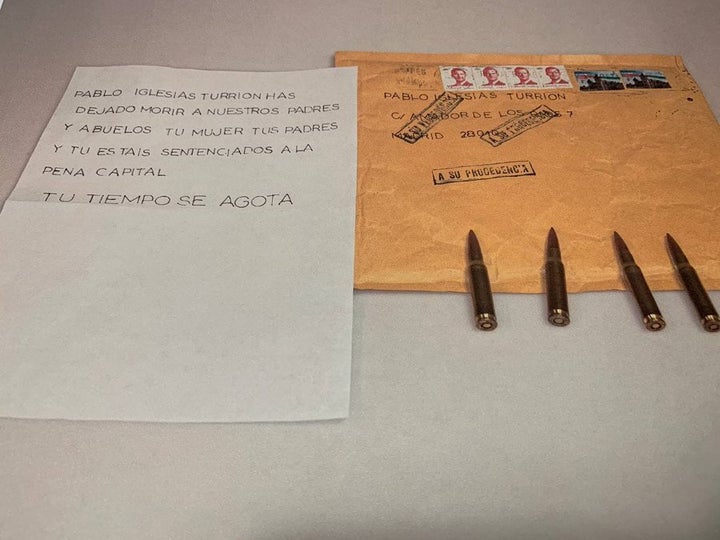 PABLO IGLESIAS TURRION HAS
DEJADO MORIR A NUESTROS PADRES
Y ABUELOS TU MUJER TUS PADRES
Y TU ESTAIS SENTENCIADOS A LA
PENA CAPITAL
TU TIEMPO SE AGOTA
PABLO IGLESIAS TURRION
C/ DE LOS 7
MADRID
A SU PROCEDENCIA